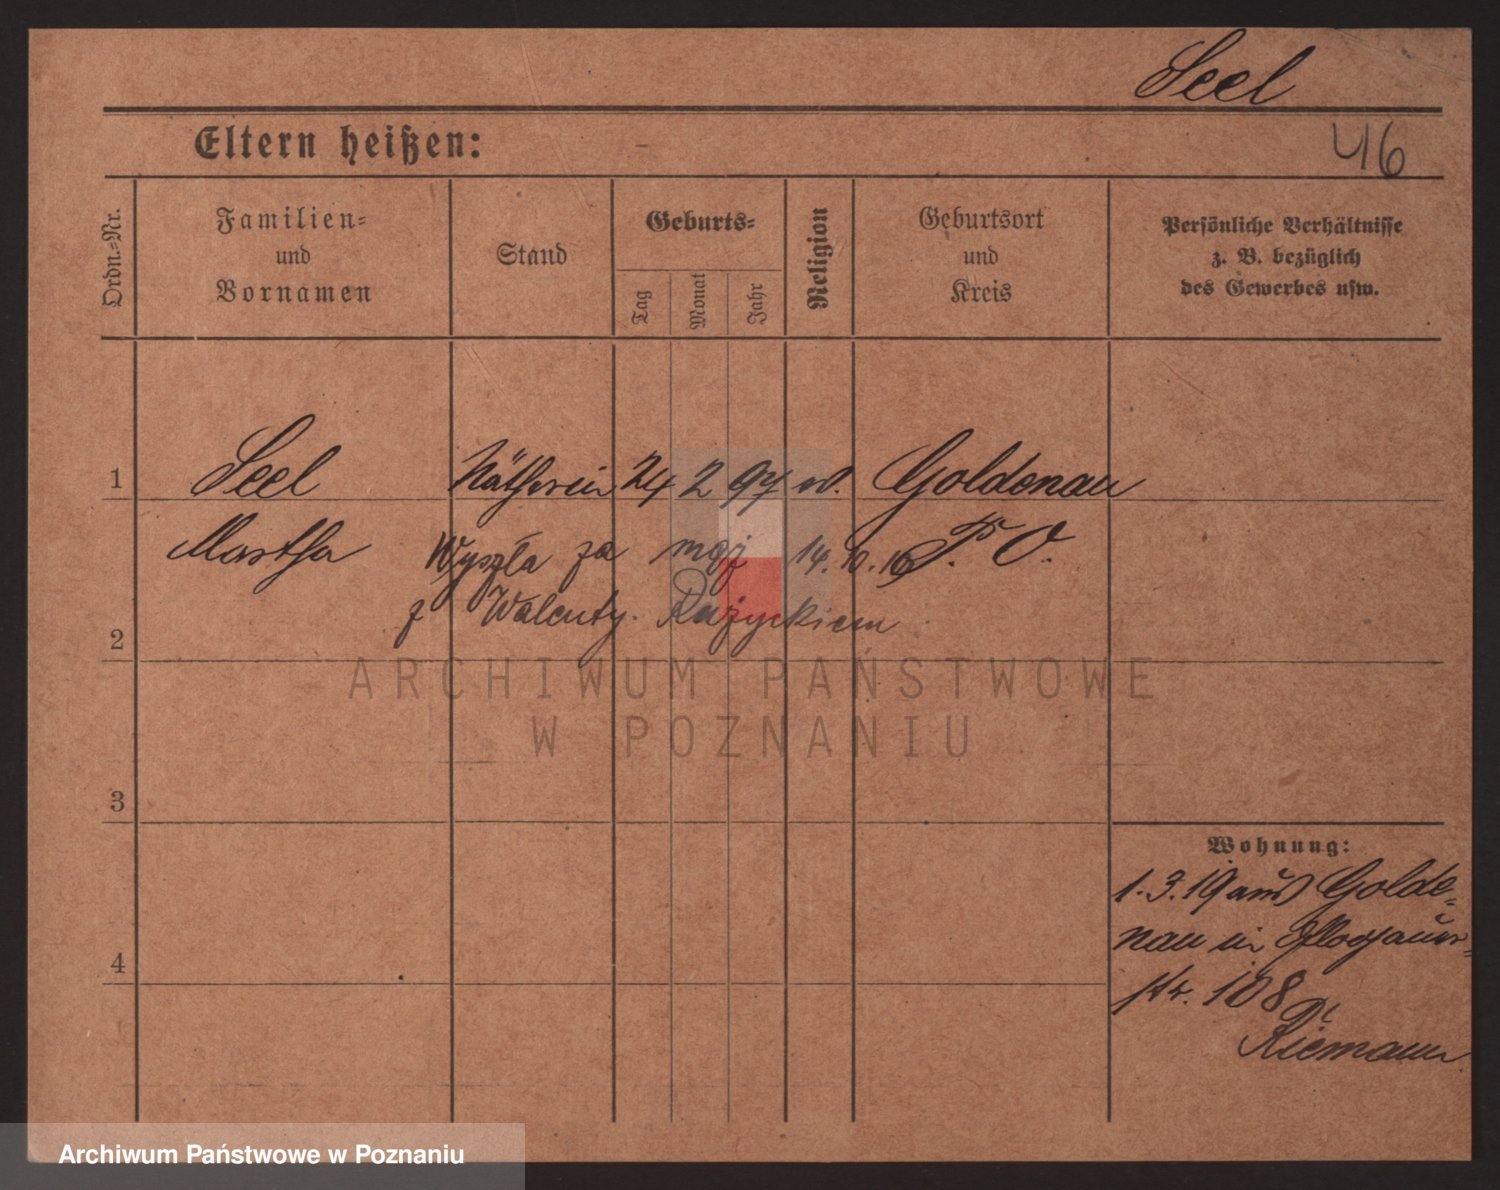 Seel
Eltern heißen:
46
Ordn.=Nr.
Familien=
und
Vornamen
Stand
Geburts=
Tag
Monat
Jahr
Religion
Geburtsort
und
Kreis
Persönliche Verhältnisse
z. B. bezüglich
des Gewerbes usw.
1
Seel Nätherin 24 2 97 ev. Goldenau
Martha P. O.
Wyszła za mąż 14. 10. 19
z Walenty. Różyckiem
2
ARCHIWUM PAŃSTWOWE
W POZNANIU
3
4
Wohnung:
1. 3. 19 aus Golde=
nau in Glogauer=
str. 108
Riemann
Archiwum Państwowe w Poznaniu